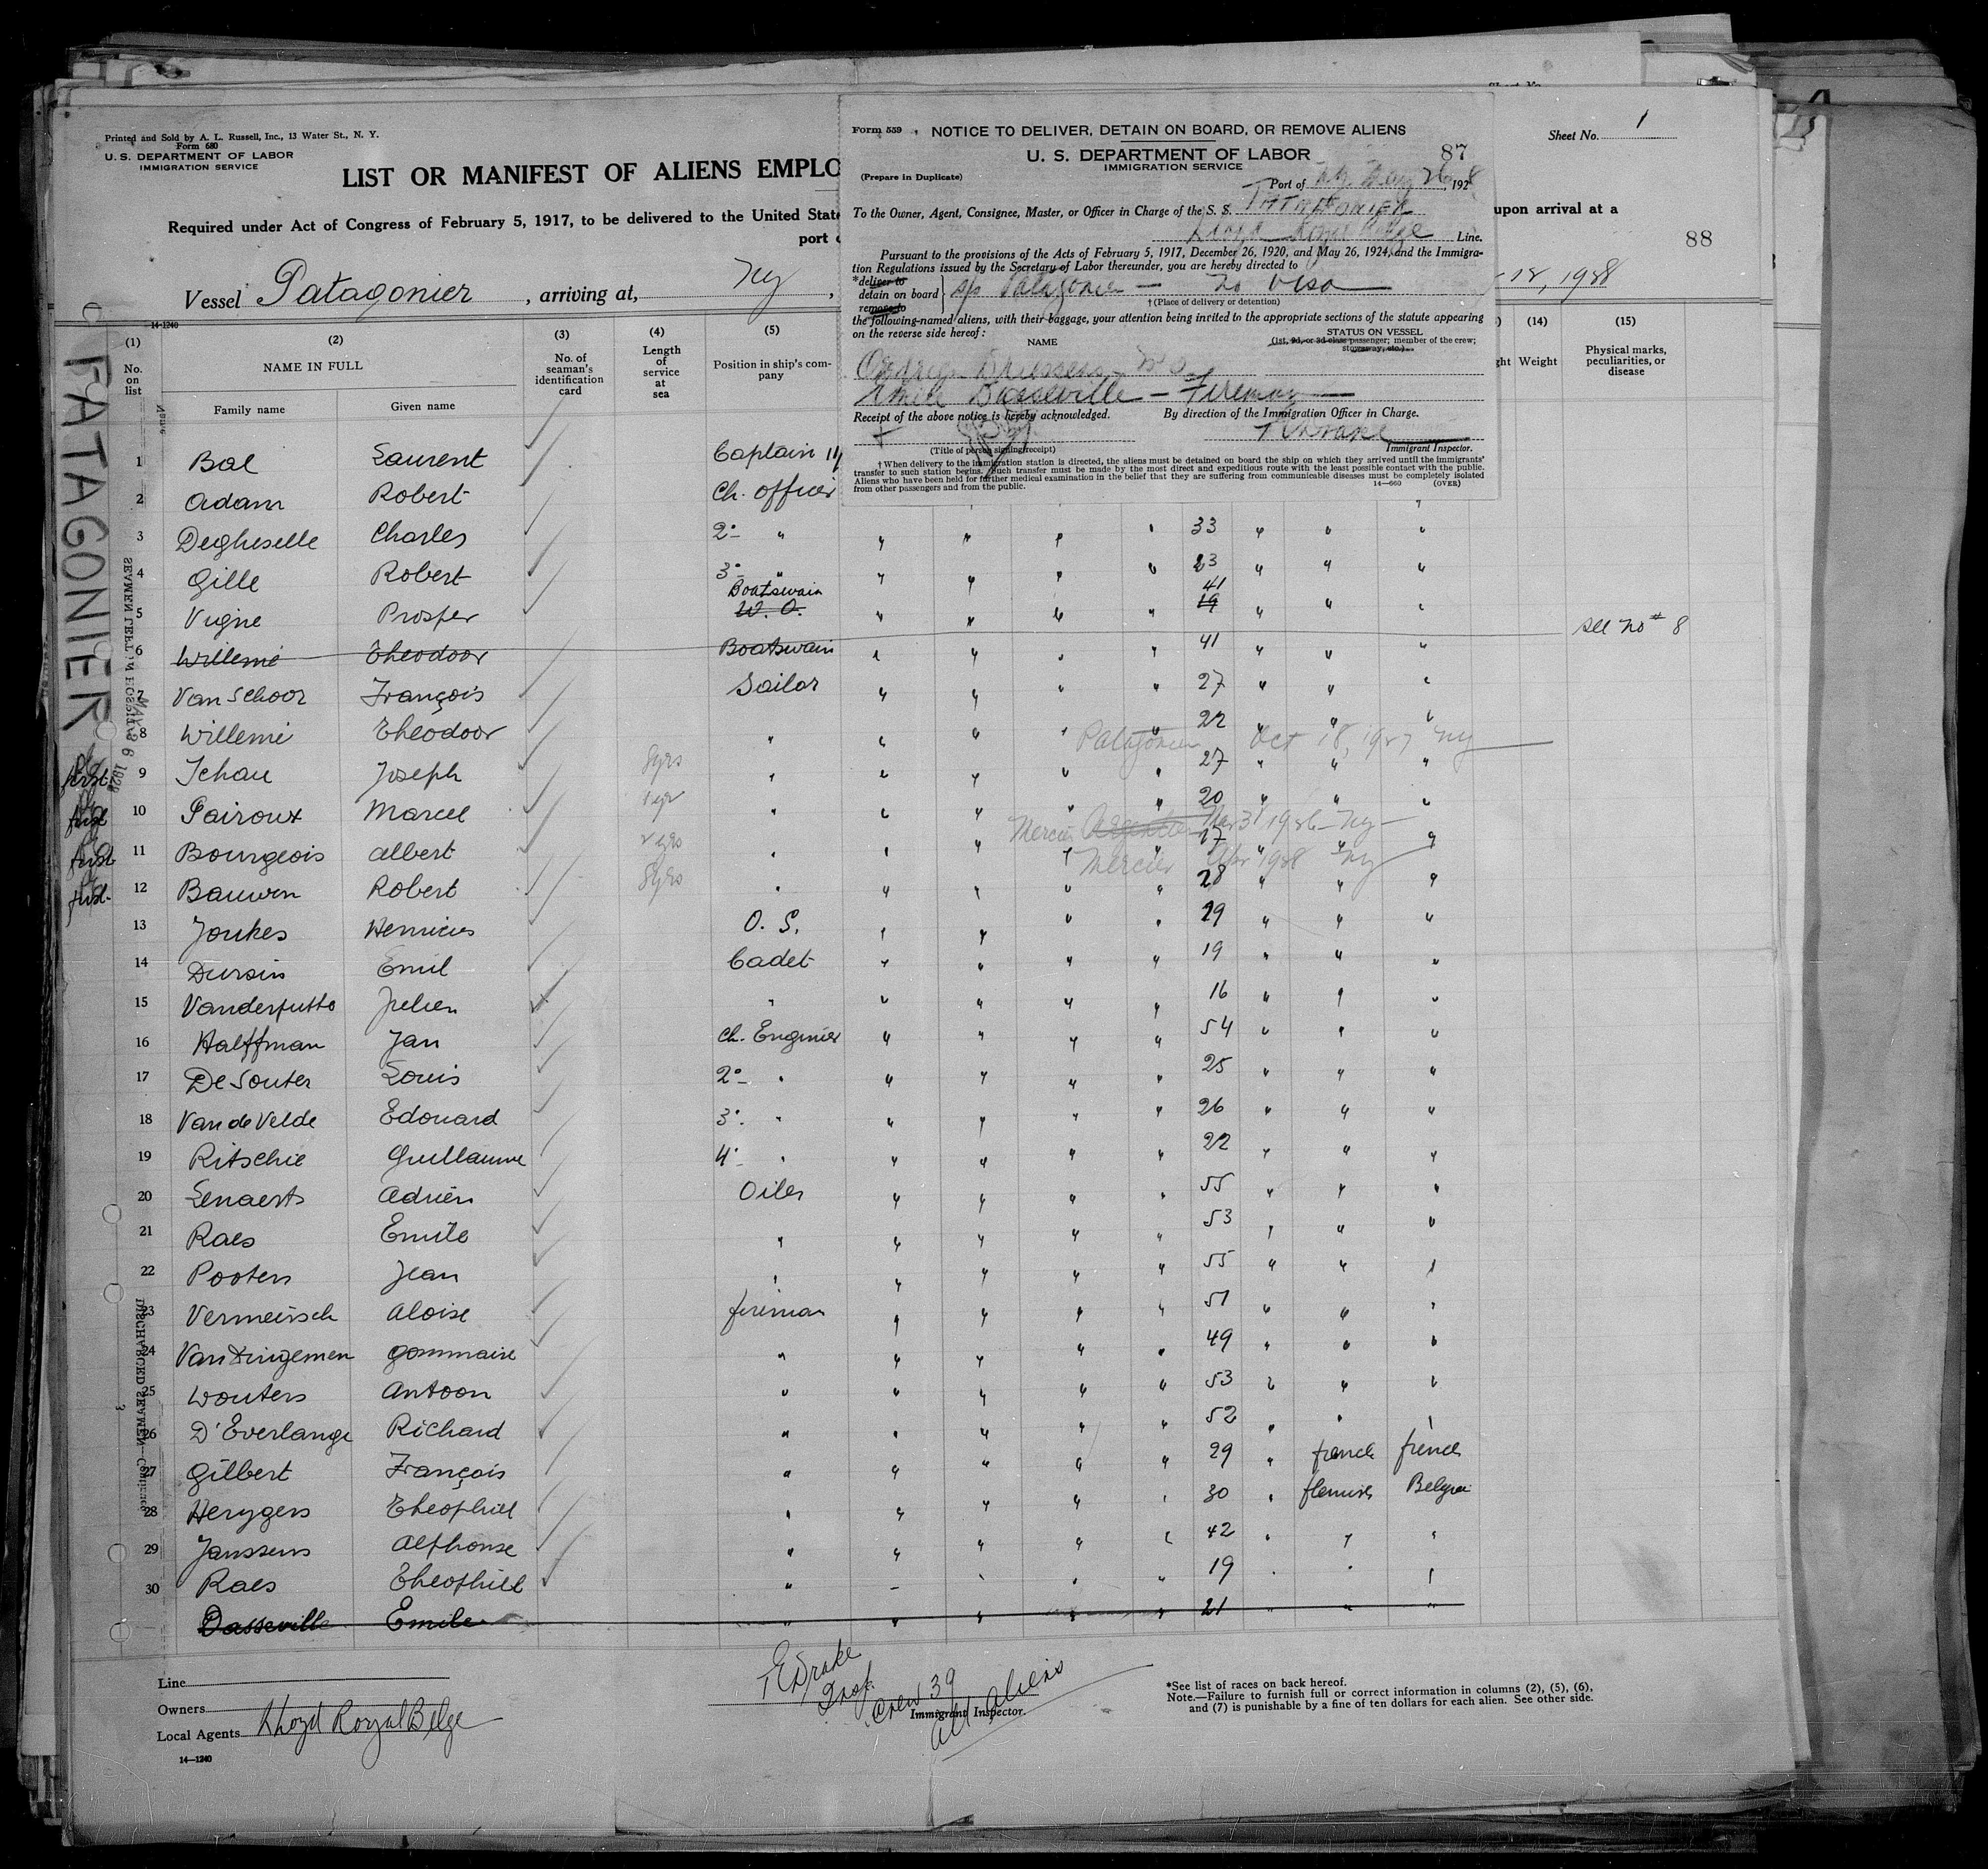 Printed and Sold by A. L. Russell, Inc., 13 Water St., N. Y.
Form 680
U. S. DEPARTMENT OF LABOR
IMMIGRATION SERVICE
Sheet No. 1
LIST OR MANIFEST OF ALIENS EMPLO
Required under Act of Congress of February 5, 1917, to be delivered to the United State
upon arrival at a
port
88
Vessel Patagonier , arriving at, Ny ,
12, 1928
Form 559
NOTICE TO DELIVER, DETAIN ON BOARD, OR REMOVE ALIENS
U. S. DEPARTMENT OF LABOR
87
IMMIGRATION SERVICE
(Prepare in Duplicate)
Port of Ny May 26, 1928
To the Owner, Agent, Consignee, Master, or Officer in Charge of the S. S. PATAGONIER
Lloyd Royal Belge Line.
Pursuant to the provisions of the Acts of February 5, 1917, December 26, 1920, and May 26, 1924, and the Immigra-
tion Regulations issued by the Secretary of Labor thereunder, you are hereby directed to
*deliver to
detain on board
remove to
s/s Patagonier — No visa
†(Place of delivery or detention)
the following-named aliens, with their baggage, your attention being invited to the appropriate sections of the statute appearing
on the reverse side hereof:
STATUS ON VESSEL
NAME
(1st, 2d, or 3d class passenger; member of the crew;
stowaway, etc.)
Driessens
Emile Dasseville — Fireman
Receipt of the above notice is hereby acknowledged.
By direction of the Immigration Officer in Charge.
T E Drake
Immigrant Inspector.
(Title of person signing receipt)
†When delivery to the immigration station is directed, the aliens must be detained on board the ship on which they arrived until the immigrants'
transfer to such station begins. Such transfer must be made by the most direct and expeditious route with the least possible contact with the public.
Aliens who have been held for further medical examination in the belief that they are suffering from communicable diseases must be completely isolated
from other passengers and from the public.
14—660
(OVER)
14-1240
(1) (2) (3) (4) (5) (14) (15)
No. on list
NAME IN FULL
Family name Given name
No. of seaman's identification card
Length of service at sea
Position in ship's com-
pany
Weight
Physical marks, peculiarities, or disease
PATAGONIER
1 Bal Laurent Captain
2 Adam Robert Ch. Officer
3 Degheselle Charles 2° " 33
4 Gille Robert 3° " 23
5 Vigne Prosper Boatswain W. O. 41 19
6 Willemé Theodoor Boatswain 41 see no # 8
7 Van Schoor François Sailor 27
8 Willemé Theodoor " 22
Patagonier Oct 18, 1927 Ny
first 9 Tchau Joseph 8yrs " 27
first 10 Pairoux Marcel 1yr " 20
Mercier Mar 31 1926 Ny
first 11 Bourgeois Albert 2 yrs " 17
Mercier Apr 1928 Ny
first 12 Bauwen Robert 8yrs " 28
13 Jonkes Henricus O. S. 29
14 Dursin Emil Cadet 19
15 Vanderputte Julien " 16
16 Halffman Jan Ch. Engineer 54
17 De Souter Louis 2° " 25
18 Van de Velde Edouard 3° " 26
19 Ritschie Guillaume 4° " 22
20 Lenaerts Adrien Oiler 55
21 Raes Emile " 53
22 Pooters Jean " 55
23 Vermeirsch Aloise fireman 51
24 Van Dingemen Gommaire " 49
25 Wouters Antoon " 53
26 D'Everlange Richard " 52
27 Gilbert François " 29 french french
28 Herygers Theophiel " 30 flemish Belgian
29 Janssens Alphonse " 42
30 Raes Theophiel " 19
Dasseville Emile " 21
Line
Owners
Local Agents Lloyd Royal Belge
14—1240
T E Drake
Insp.
Crew 39
all Aliens
Immigrant Inspector.
*See list of races on back hereof.
Note.—Failure to furnish full or correct information in columns (2), (5), (6),
and (7) is punishable by a fine of ten dollars for each alien. See other side.